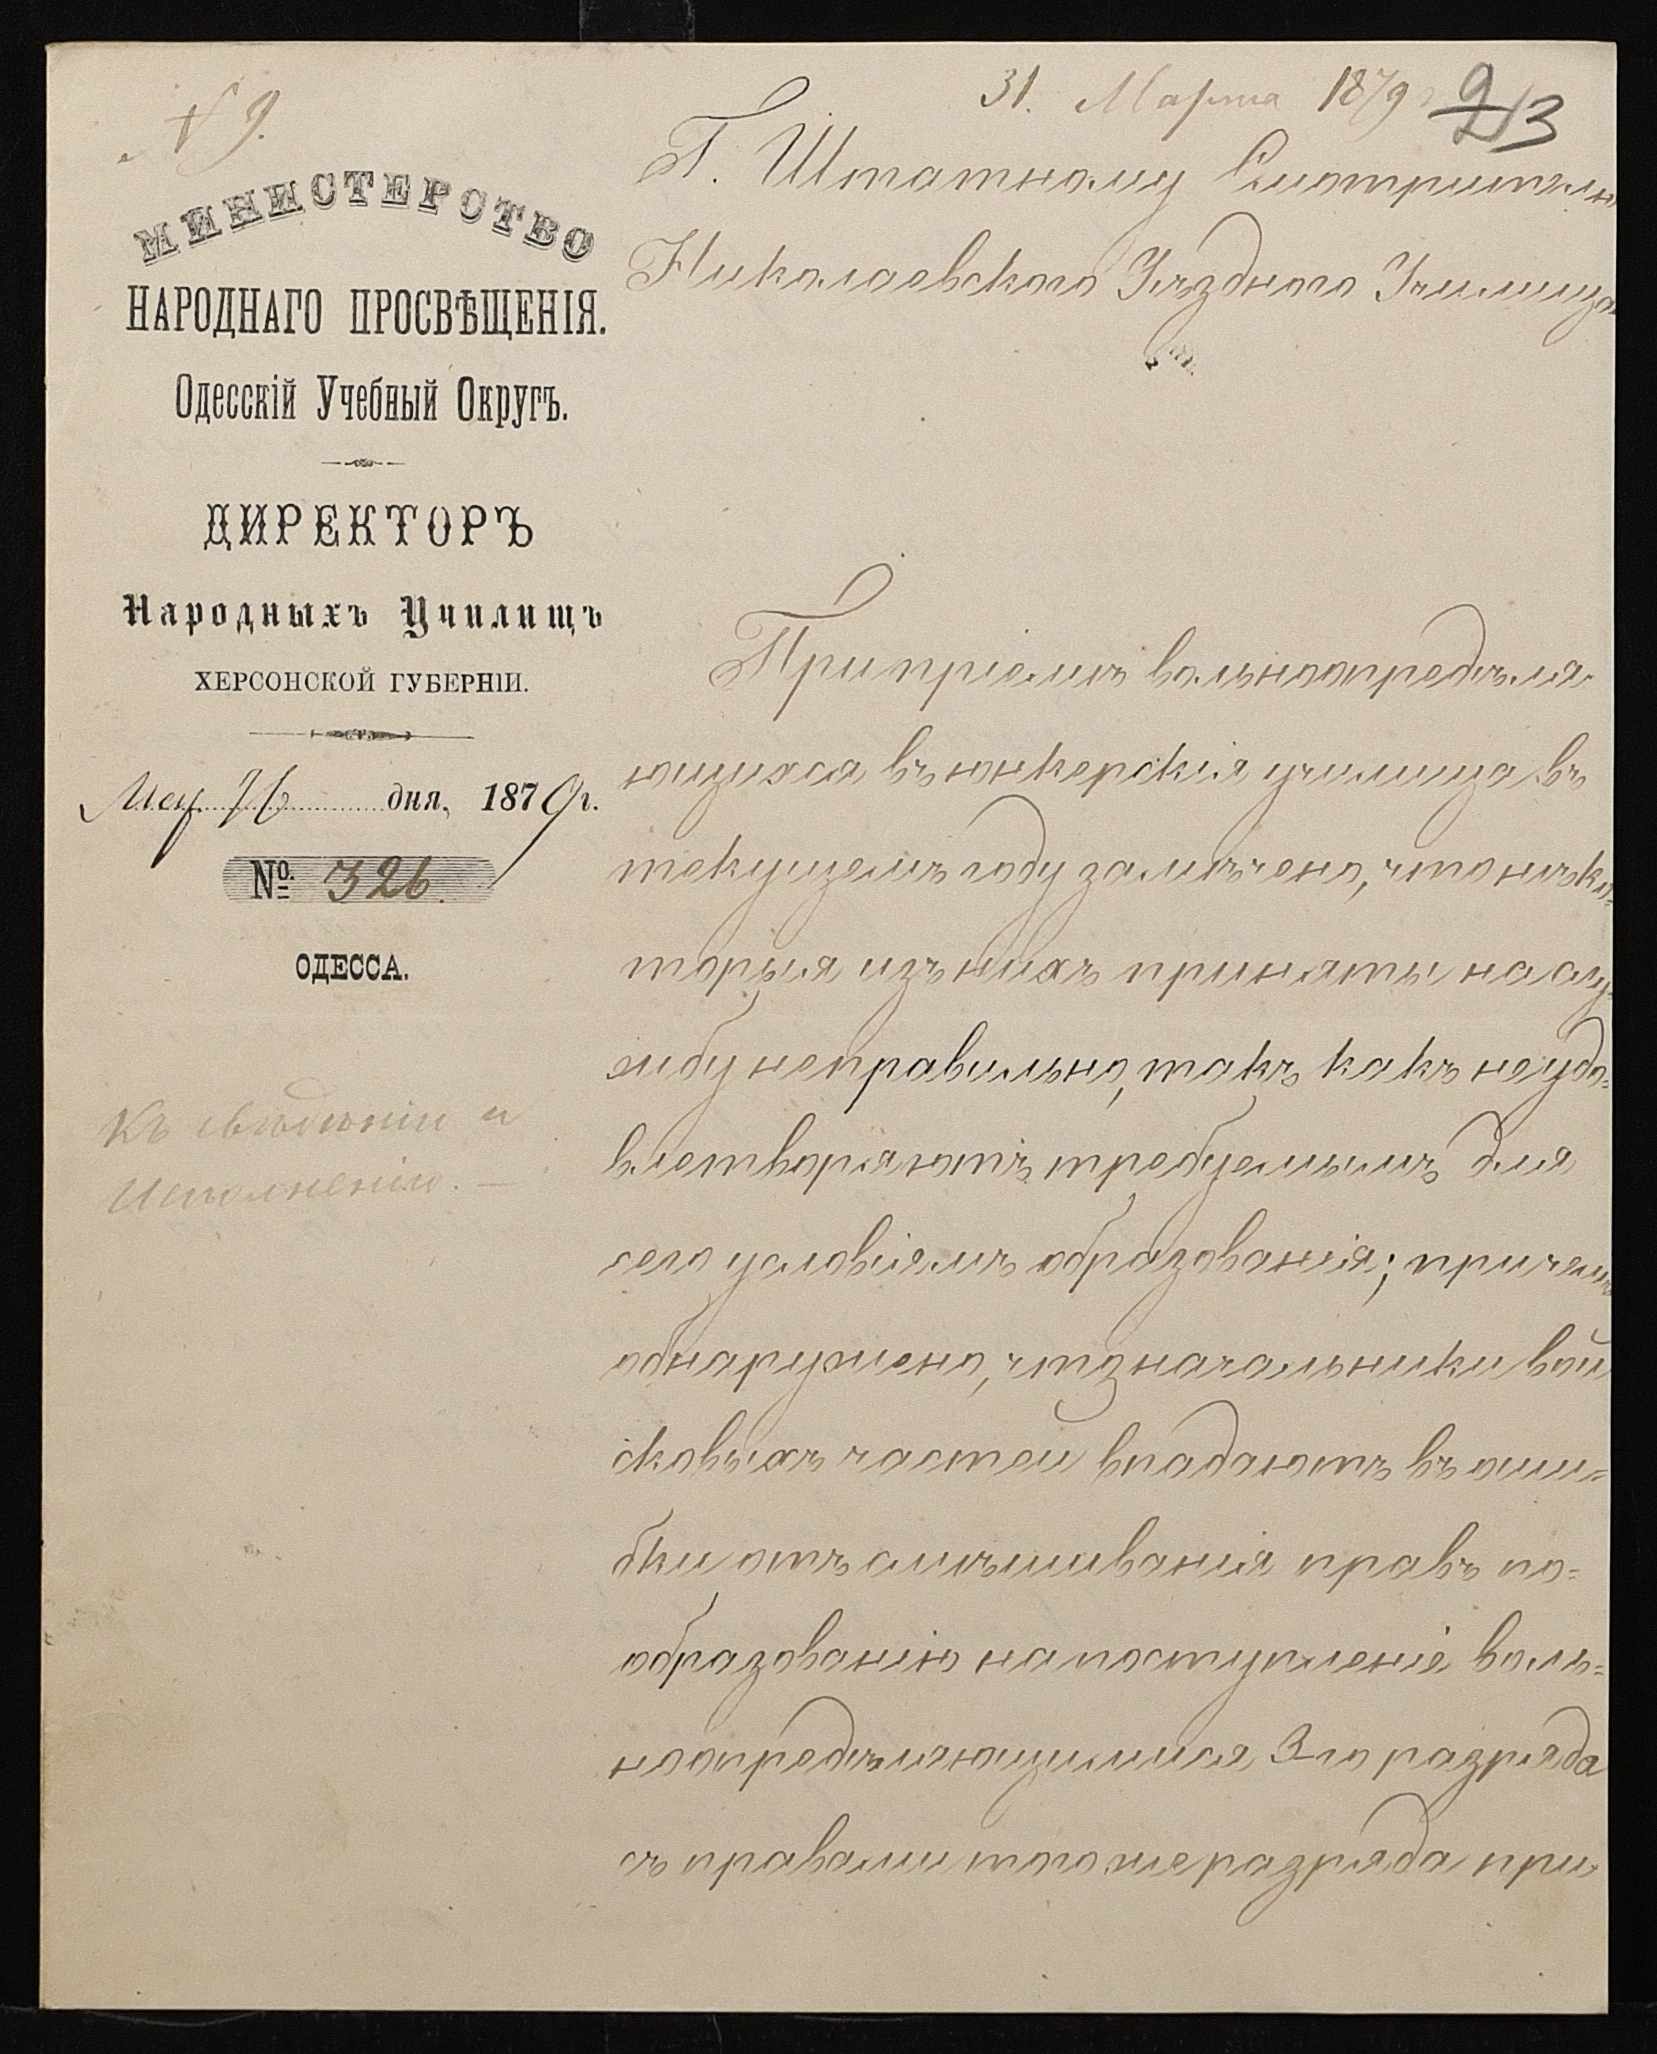 № 9.
31. Марта 1879
9
МИНИСТЕРСТВО
НАРОДНАГО ПРОСВѢЩЕНІЯ.
Одесскій Учебный Округъ.
ДИРЕКТОРЪ
Народныхъ Училищъ
ХЕРСОНСКОЙ ГУБЕРНІИ.
дня, 1879 г.
№ 326.
ОДЕССА.
Къ свѣдѣнію и
исполненію. —
Г. Штатному Смотрителю
Николаевскаго Уѣзднаго Училища
При пріемѣ вольноопредѣля-
ющихся въ юнкерскія училища въ
текущемъ году замѣчено, что нѣко-
торыя изъ нихъ приняты на слу-
жбу неправильно, такъ какъ не удо-
влетворяютъ требуемымъ для
сего условіямъ образованія; причемъ
обнаружено, что начальники вой
сковыхъ частей впадаютъ въ оши-
бки отъ смѣшиванія правъ по-
образованію на поступленіе воль-
ноопредѣляющимися 3го разряда
съ правами того же разряда при